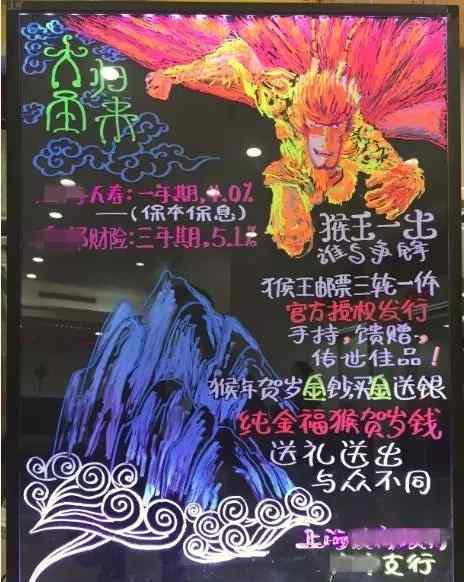 大圣归来
人寿:一年期,4.0%
——(保本保息)
财险:三年期,5.1%
猴王一出
谁与争锋
猴王邮票三轮一体
官方授权发行
手持,馈赠,
传世佳品!
猴年贺岁金钞买金送银
纯金福猴贺岁钱
送礼送出
与众不同
上海
支行